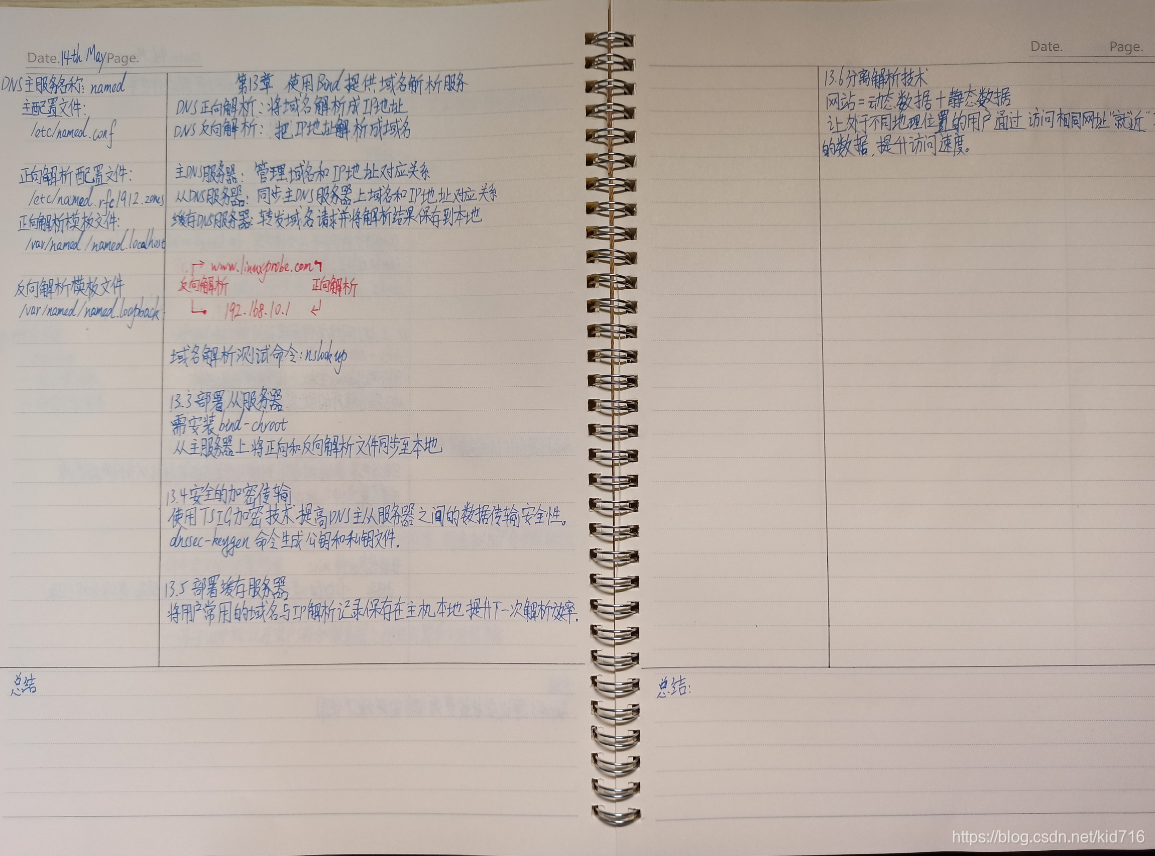 Date.14th May Page.
DNS主服务名称: named
主配置文件:
/etc/named.conf
正向解析配置文件:
/etc/named.rfc1912.zones
正向解析模板文件:
/var/named/named.localhost
反向解析模板文件
/var/named/named.loopback
第13章 使用Bind提供域名解析服务
DNS正向解析: 将域名解析成IP地址
DNS反向解析: 把IP地址解析成域名
主DNS服务器: 管理域名和IP地址对应关系
从DNS服务器: 同步主DNS服务器上域名和IP地址对应关系
缓存DNS服务器: 转发域名请求并将解析结果保存到本地
www.linuxprobe.com
反向解析 正向解析
192.168.10.1
域名解析测试命令: nslookup
13.3 部署从服务器
需安装bind-chroot
从主服务器上将正向和反向解析文件同步至本地
13.4 安全的加密传输
使用TSIG加密技术提高DNS主从服务器之间的数据传输安全性。
dnssec-keygen 命令生成公钥和私钥文件.
13.5 部署缓存服务器
将用户常用的域名与IP解析记录保存在主机本地 提升下一次解析效率.
总结
Date. Page.
13.6 分离解析技术
网站=动态数据+静态数据
让处于不同地理位置的用户通过访问相同网址"就近"
的数据,提升访问速度。
总结:
https://blog.csdn.net/kid716